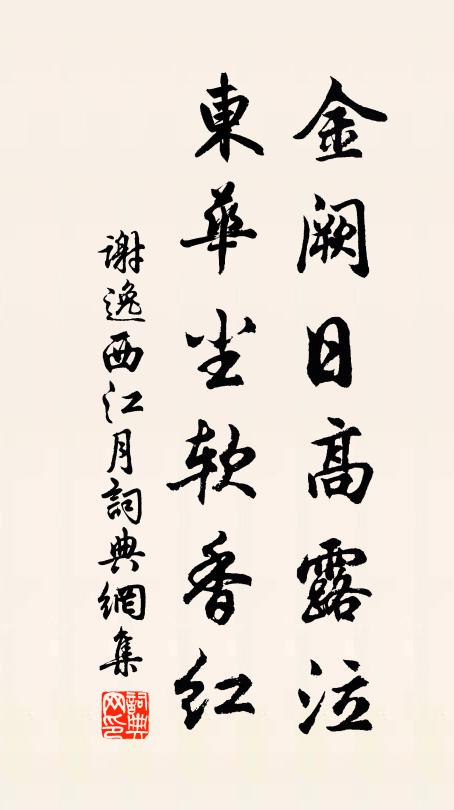 金阙日高露泣
東華尘软香红
謝逸西江月詞典網集
詞典网印